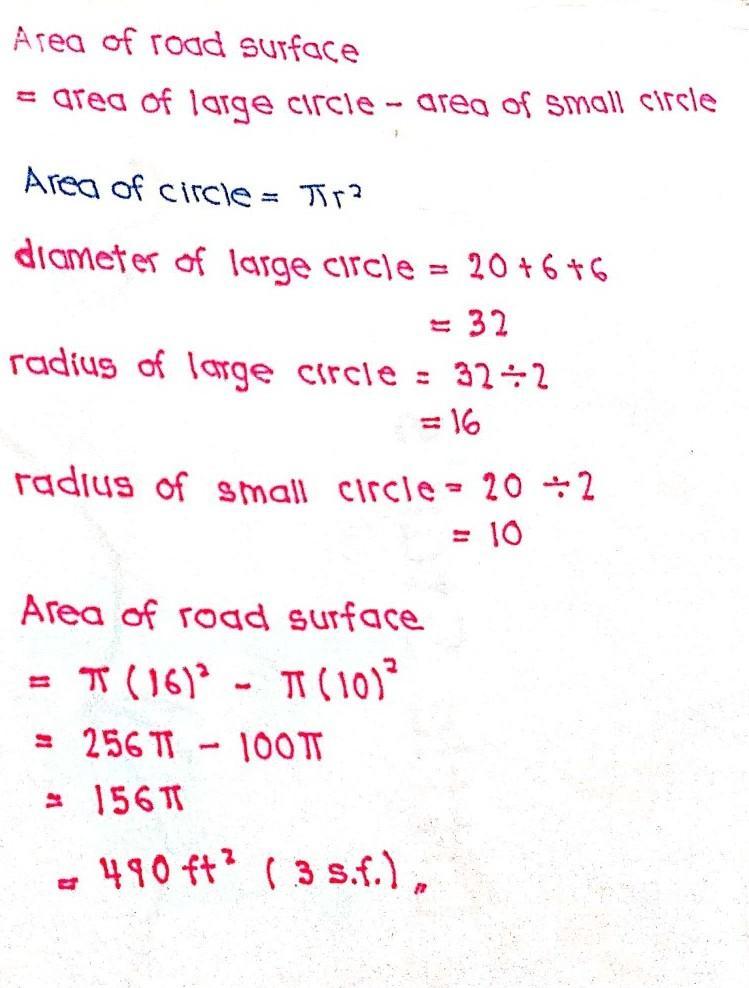 Area of road surface
= area of large circle - area of small circle
Area of circle = πr²
diameter of large circle = 20 + 6 + 6
= 32
radius of large circle = 32 ÷ 2
= 16
radius of small circle = 20 ÷ 2
= 10
Area of road surface
= π (16)² - π (10)²
= 256 π - 100 π
= 156 π
= 490 ft² ( 3 s.f.) „